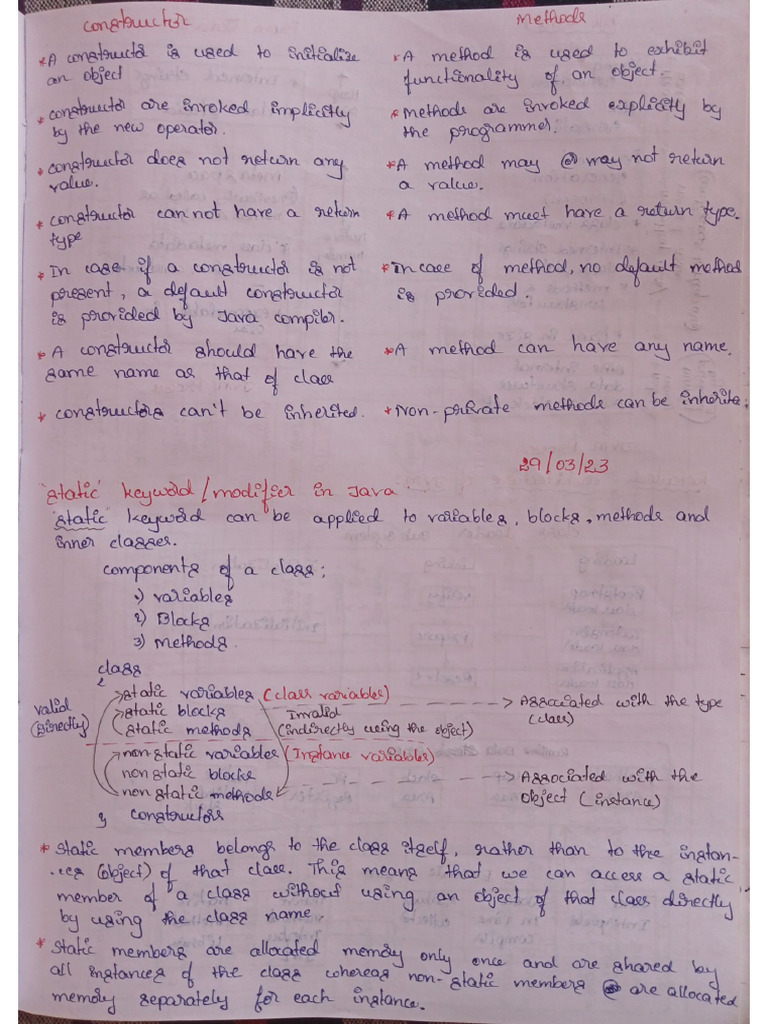 Constructor
* A constructor is used to initialize
an object
* constructor are invoked implicitly
by the new operator.
* constructor does not return any
value.
* constructor can not have a return
type
* In case if a constructor is not
present, a default constructor
is provided by Java compiler.
* A constructor should have the
same name as that of class
* constructors can't be inherited.
Methods
* A method is used to exhibit
functionality of an object.
* Methods are invoked explicity by
the programmer.
* A method may or may not return
a value.
* A method must have a return type.
* In case of method, no default method
is provided.
* A method can have any name.
* Non-private methods can be inherite
29/03/23
"static" keyword/modifier in Java
"static" keyword can be applied to variables, blocks, methods and
inner classes.
components of a class:
1) variables
2) Blocks
3) methods.
class
{
valid
(directly)
static variables (class variables)
static blocks
static methods
Invalid
(indirectly using the object)
Associated with the type
(class)
non static variables (Instance variables)
non static blocks
non static methods
Associated with the
object (instance)
} constructors
* Static members belongs to the class itself, rather than to the instan-
-ces (object) of that class. This means that we can access a static
member of a class without using an object of that class directly
by using the class name.
* Static members are allocated memory only once and are shared by
all instances of the class whereas non-static members are allocated
memory separately for each instance.